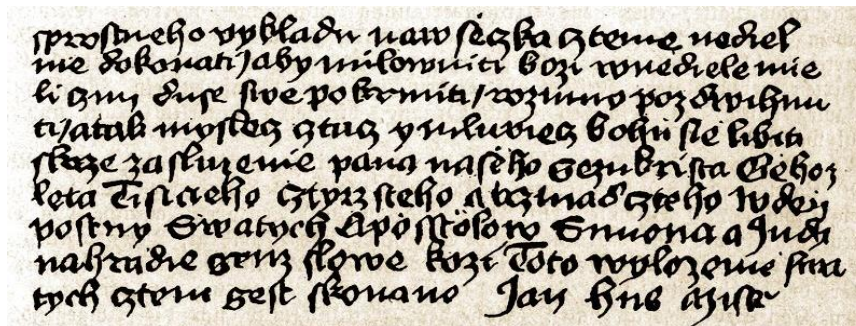 sprostneho vykladu naw sseczka cztenie nediel
nie dokonati / aby milownici bozi w nediele mie
li czim duse swe pokrmiti / rozumo pozdwihnu
ti / a tak mysleç cztuç y mluwieç bohu sie libiti
skrze zasluzenie pana naseho Gezukrista Gehoz
leta Tisicieho cztyrzsteho a trzinadczteho w deň
postny Swatych Aposstolow Simona a Judy
na hradie genz slowe kozi Toto wylozenie swa
tych cztení gest skonano Jan hus